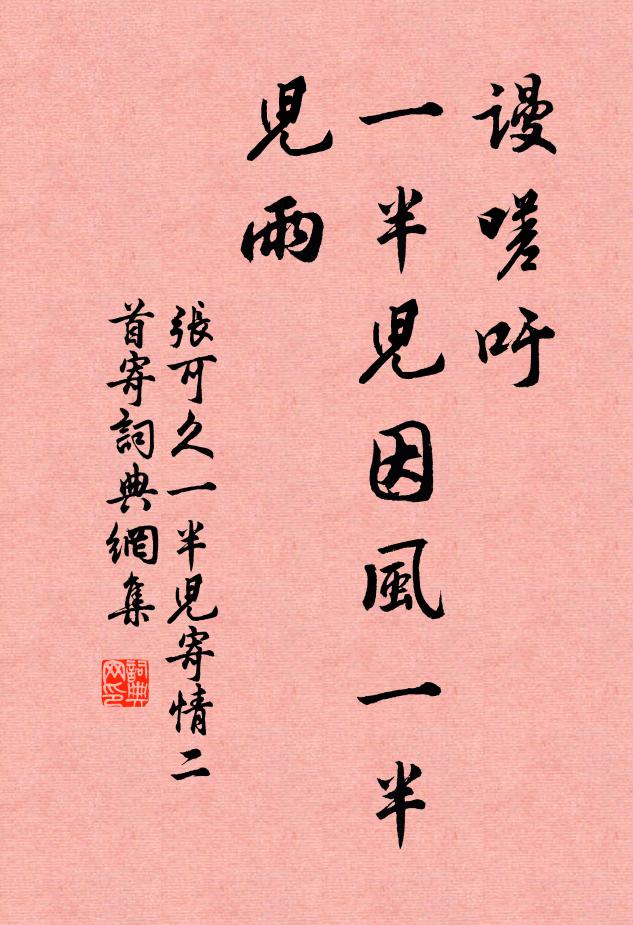 謾嗟吁
一半兒因風一半
兒雨
張可久一半兒寄情二
首寄詞典網集
詞典
网印